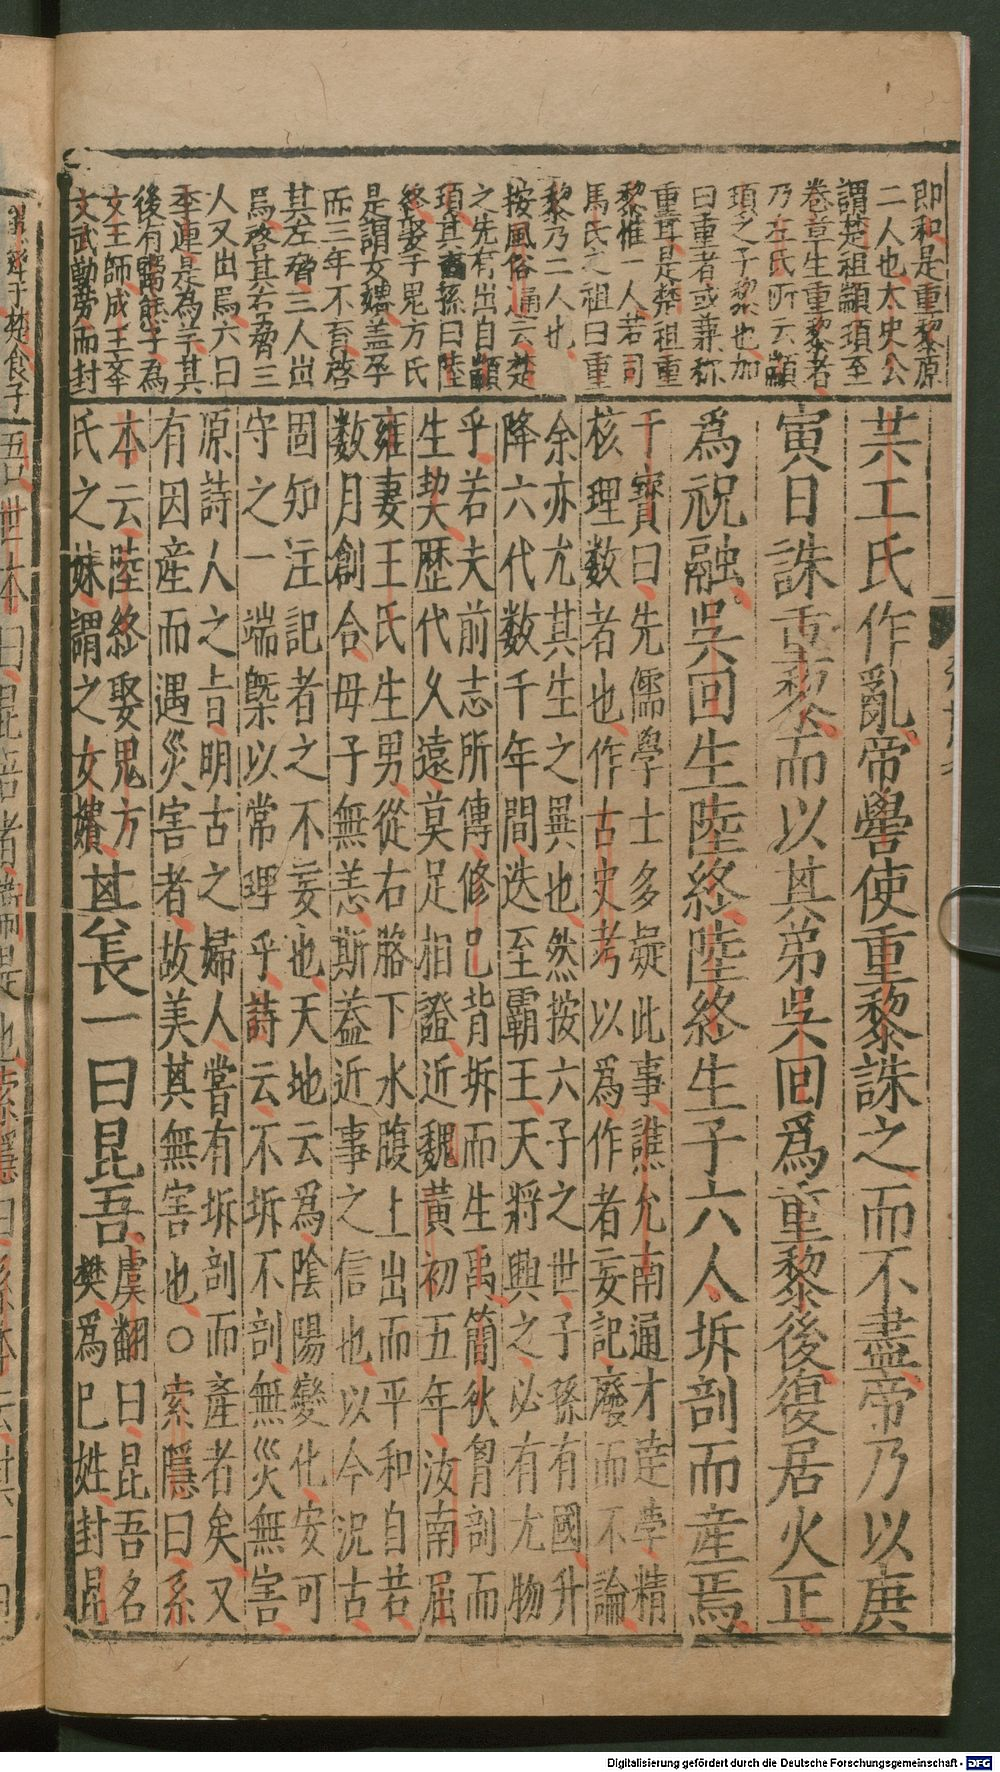 即和是重黎原
二人也太史公
謂楚祖顓頊至
卷章生重黎者
乃左氏所云顓
頊之子黎也加
曰重者或兼称
重耳是楚祖重
黎惟一人若司
馬氏之祖曰重
黎乃二人也
按風俗通云楚
之先有出自顓
頊其裔孫曰陸
終娶于鬼方氏
是謂女嬇盖孕
而三年不育啓
其左脅三人出
焉啓其右脅三
人又出焉六曰
季連是為羋其
後有鬻熊子為
文王師成王舉
文武勤勞而封
共工氏作亂帝嚳使重黎誅之而不盡帝乃以庚
寅日誅重黎而以其弟吳回爲重黎後復居火正
爲祝融吳回生陸終陸終生子六人坼剖而産焉
干寶曰先儒學士多疑此事譙允南通才達學精
核理数者也作古史考以爲作者妄記廢而不論
余亦尤其生之異也然按六子之世子孫有國升
降六代数千年間迭至霸王天將興之必有尤物
乎若夫前志所傳修己背坼而生禹簡狄胷剖而
生契歷代久遠莫足相證近魏黃初五年汝南屈
雍妻王氏生男從右胳下水腹上出而平和自若
数月創合母子無恙斯葢近事之信也以今况古
固知注記者之不妄也天地云爲陰陽變化安可
守之一端槩以常理乎詩云不坼不剖無災無害
原詩人之旨明古之婦人嘗有坼剖而產者矣又
有因産而遇災害者故美其無害也○索隱曰系
本云陸終娶鬼方
氏之妹謂之女嬇其長一曰昆吾虞翻曰昆吾名
樊爲己姓封昆